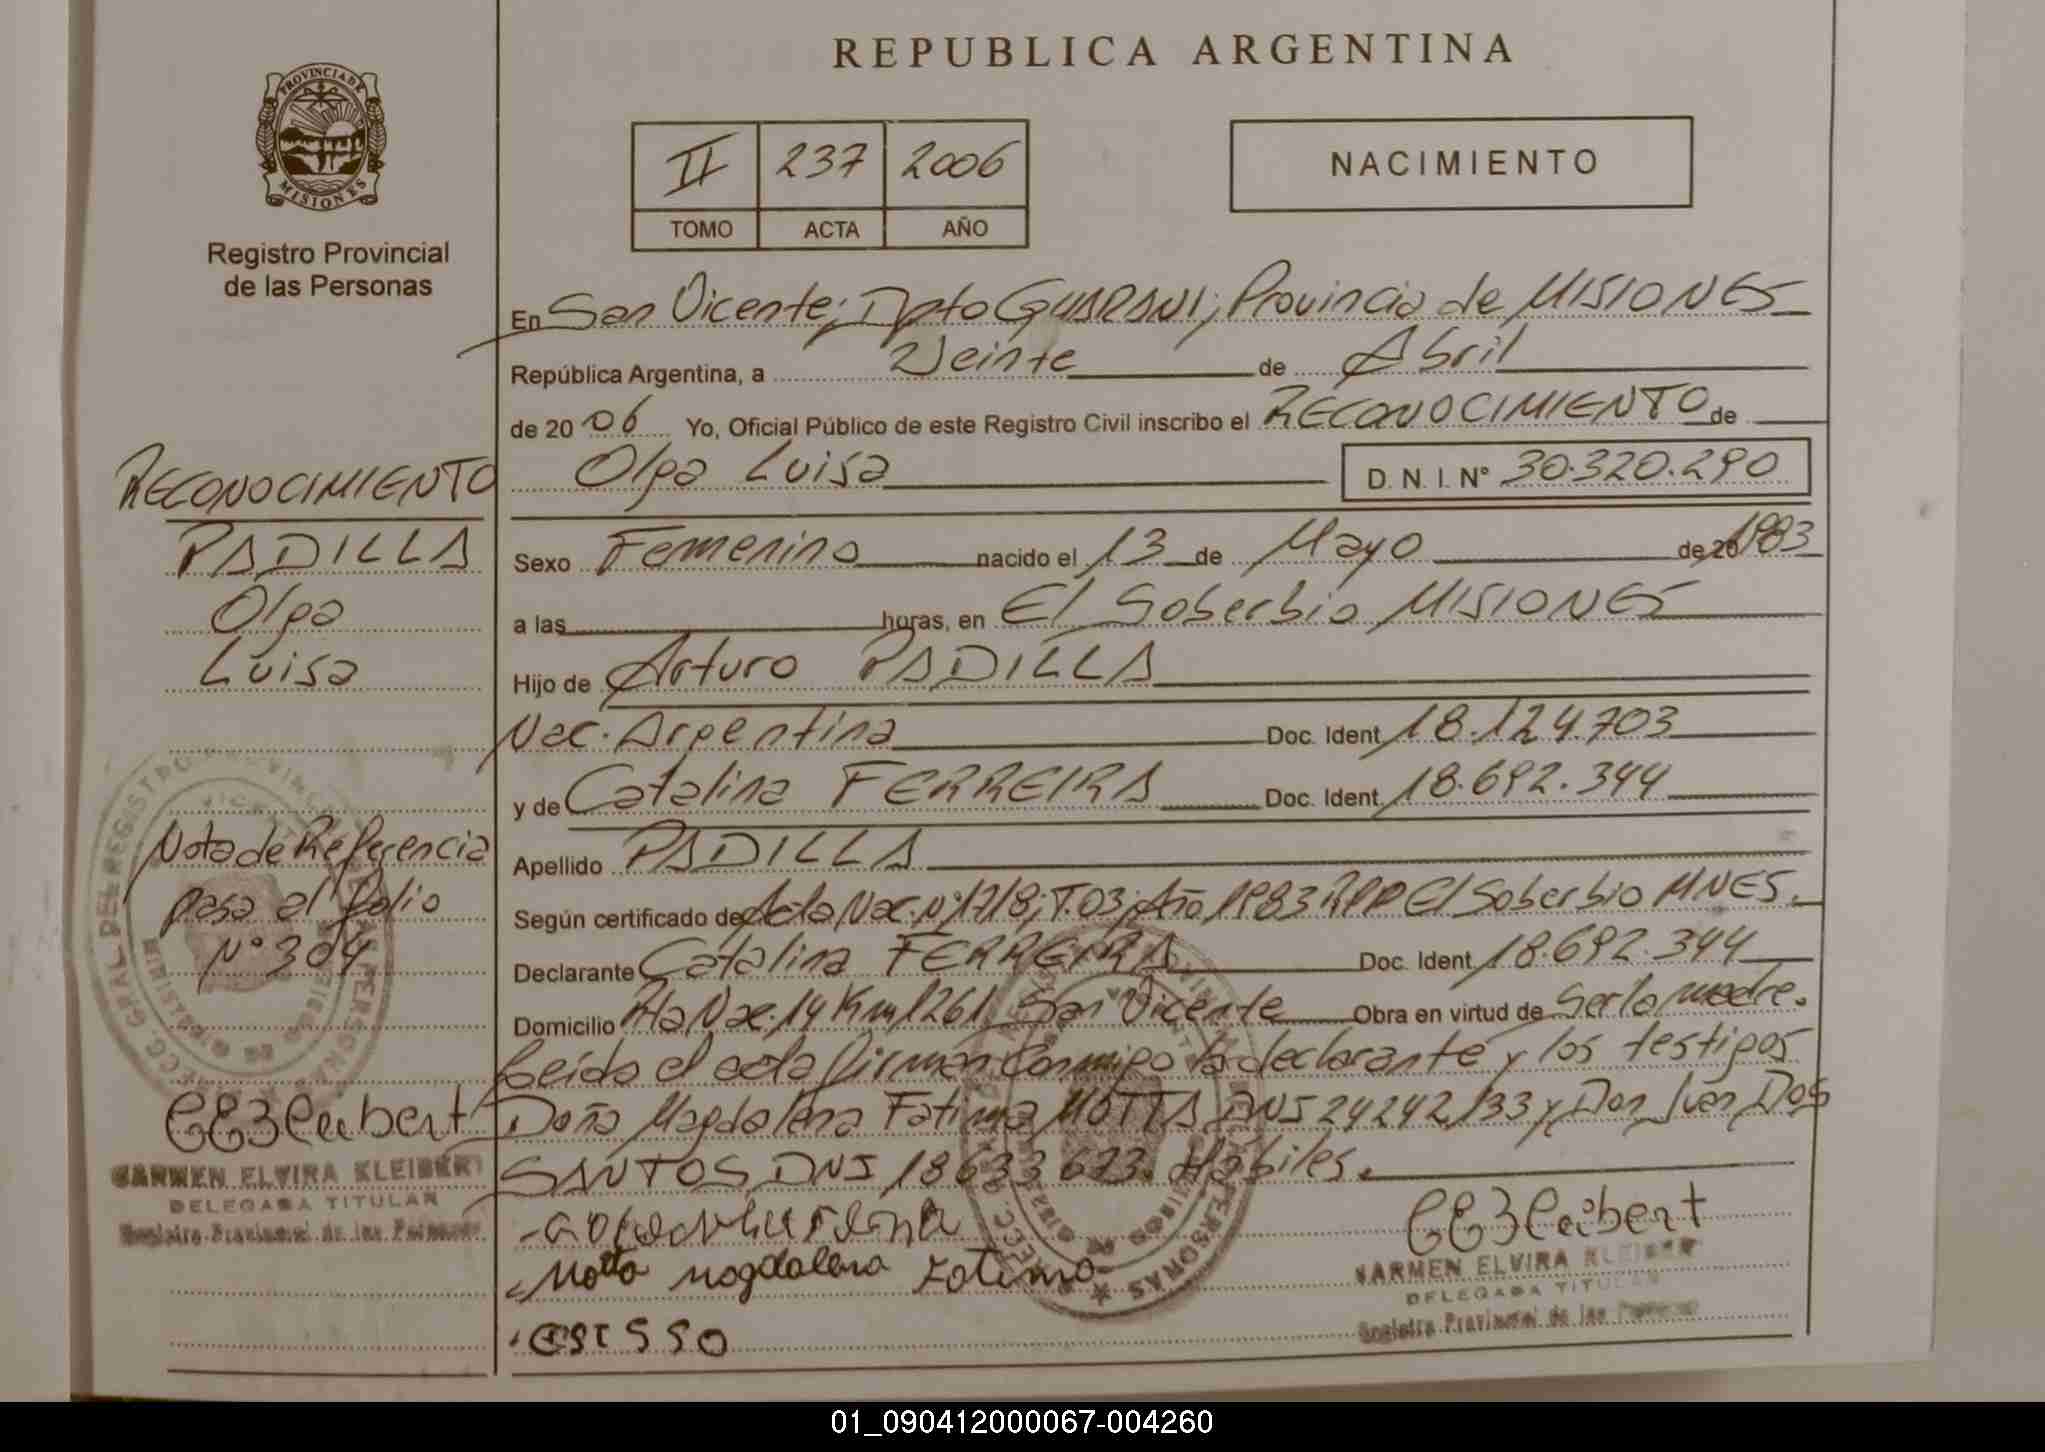 REPUBLICA ARGENTINA
PROVINCIA DE
MISIONES
Registro Provincial
de las Personas
II 237 2006
TOMO ACTA AÑO
NACIMIENTO
En San Vicente; Dpto GUARANI; Provincia de MISIONES
República Argentina, a Veinte de Abril
de 2006 Yo, Oficial Público de este Registro Civil inscribo el RECONOCIMIENTO de
Olga Luisa D. N. I. N° 30.320.290
Sexo Femenino nacido el 13 de Mayo de 20 1983
a las horas, en El Soberbio MISIONES
Hijo de Arturo PADILLA
Nac. Argentina Doc. Ident 18.124.703
y de Catalina FERREIRA Doc. Ident. 18.692.344
Apellido PADILLA
Según certificado de Acta Nac. N° 1718; T.03; Año 1983 RPP El Soberbio MNES.
Declarante Catalina FERREIRA Doc. Ident 18.692.344
Domicilio Rta Nac. 14 Km 1261 San Vicente Obra en virtud de Ser la madre.
Leída el acta firman conmigo la declarante y los testigos
Doña Magdalena Fatima MOTTA DNI 24242133 y Don Juan DOS
SANTOS DNI 18633673. Hábiles.
Motta Magdalena Fatima
RECONOCIMIENTO
PADILLA
Olga
Luisa
Nota de Referencia
pasa al folio
N° 304
CARMEN ELVIRA KLEIBERT
DELEGADA TITULAR
Registro Provincial de las Personas
CARMEN ELVIRA KLEIBERT
DELEGADA TITULAR
Registro Provincial de las Personas
01_090412000067-004260